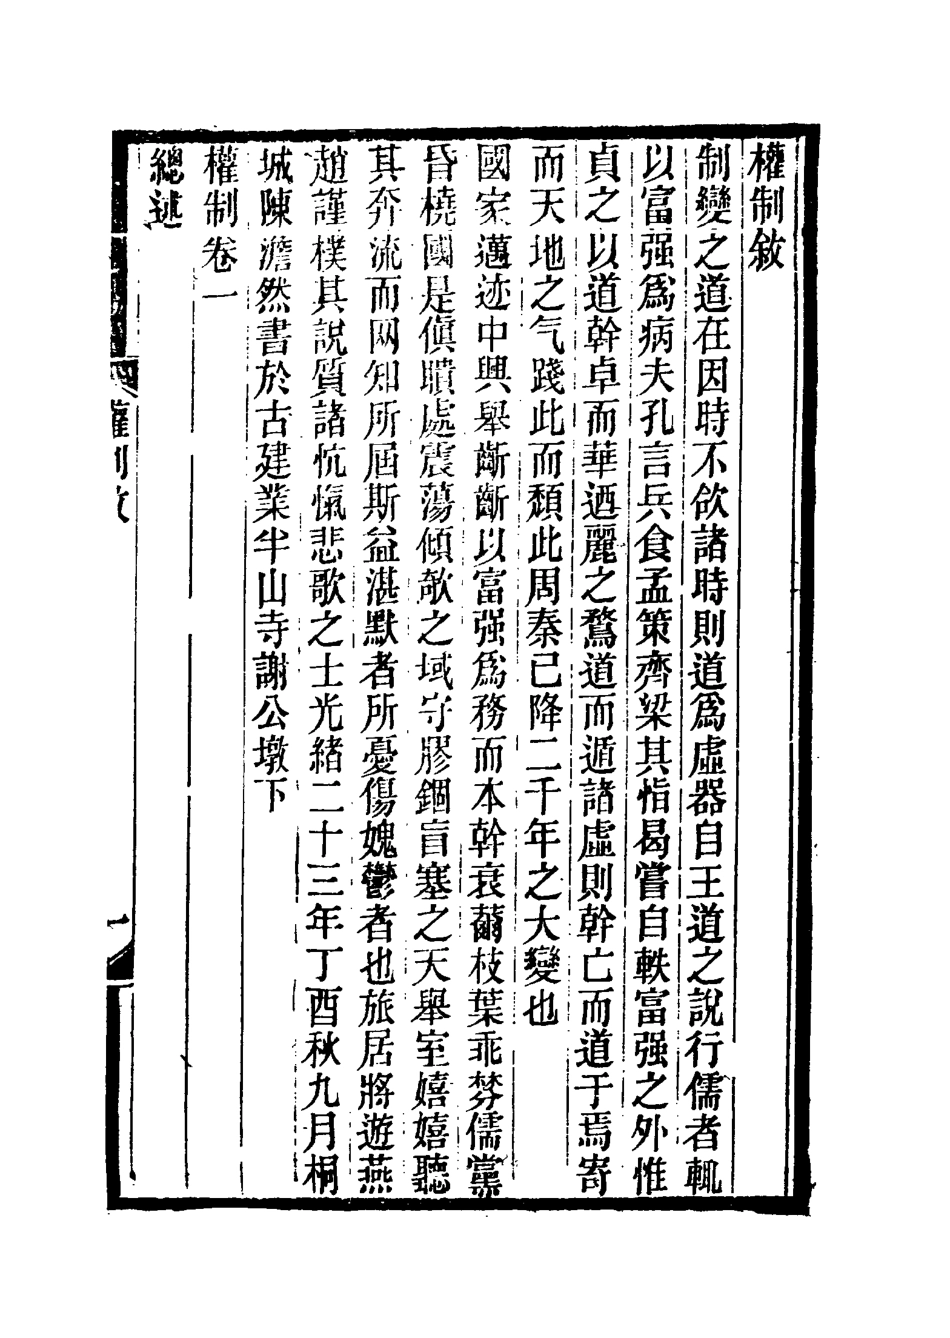 權制敘
制變之道在因時不欲諸時則道爲虛器自王道之說行儒者輒
以富强爲病夫孔言兵食孟策齊梁其恉曷嘗自軼富强之外惟
貞之以道幹卓而華迺麗之鶩道而遁諸虛則幹亡而道于焉寄
而天地之气踐此而頽此周秦已降二千年之大變也
國家邁迹中興舉齗齗以富强爲務而本幹衰薾枝葉乖棼儒黨
昏橈國是傎瞶處震蕩傾欹之域守膠錮盲塞之天舉室嬉嬉聽
其奔流而网知所屆斯益湛默者所憂傷媿鬱者也旅居將遊燕
趙謹樸其說質諸忼愾悲歌之士光緒二十三年丁酉秋九月桐
城陳澹然書於古建業半山寺謝公墩下
權制卷一
總述
權制敘
一